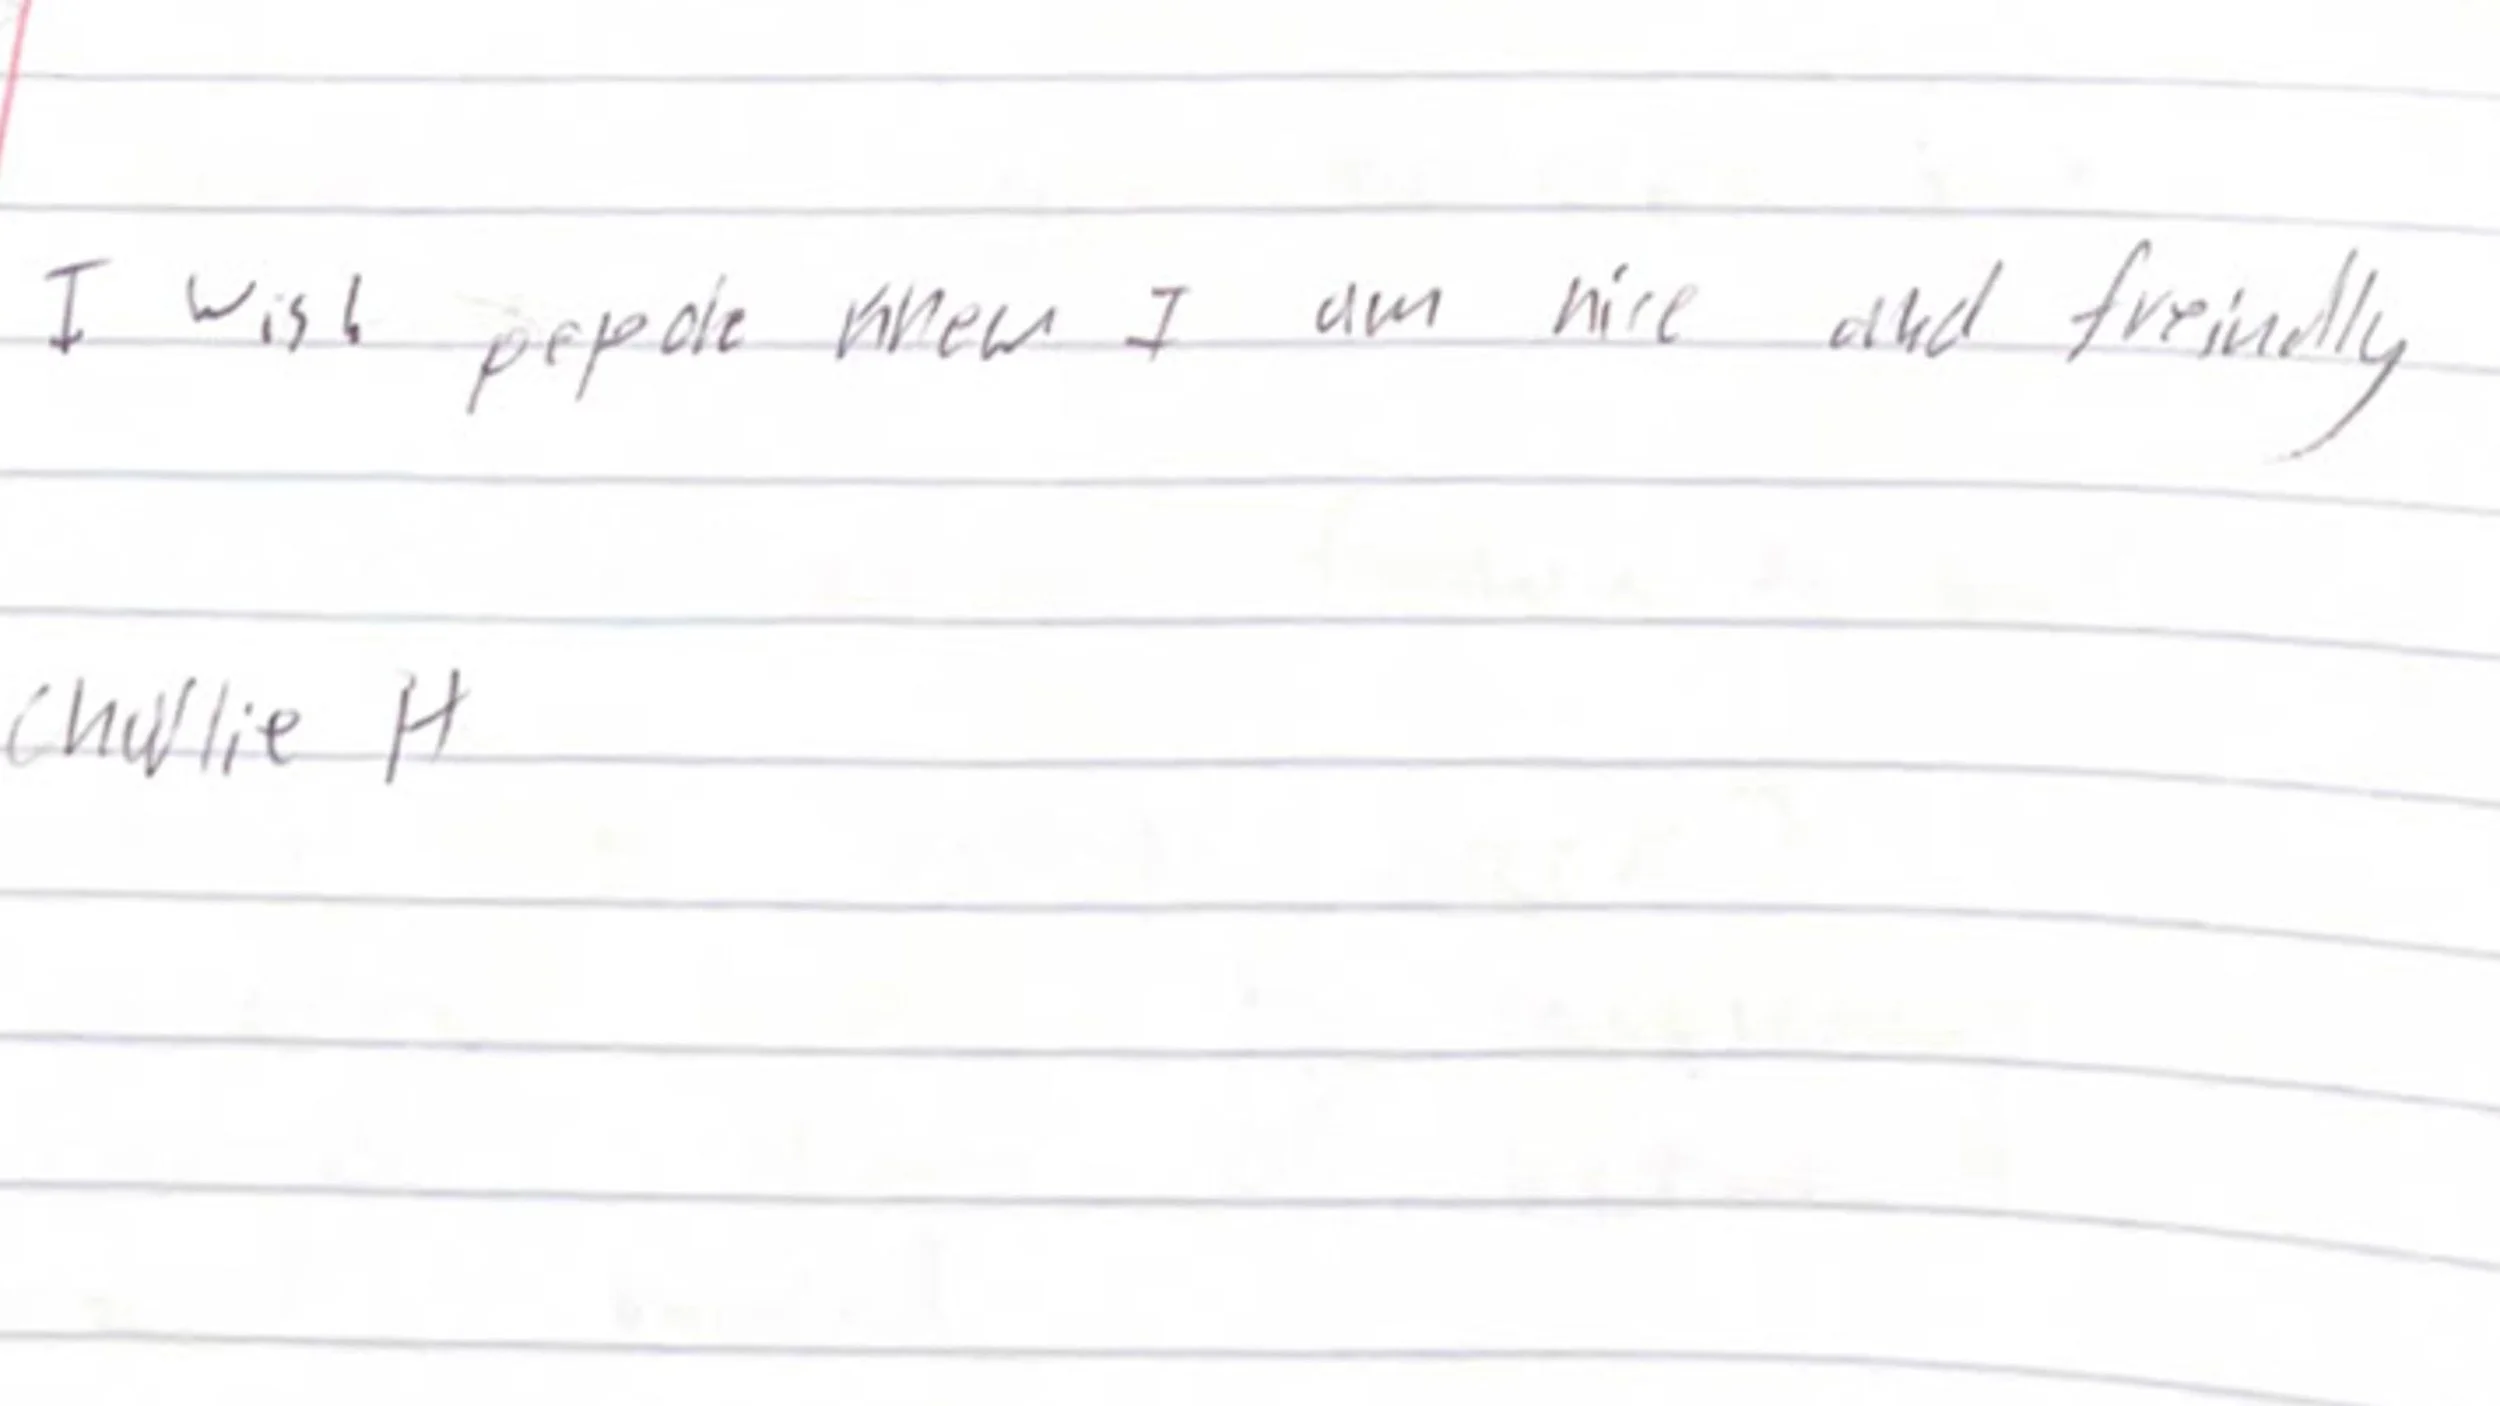 I wish pepole knew I am nice and freindly
Charlie H